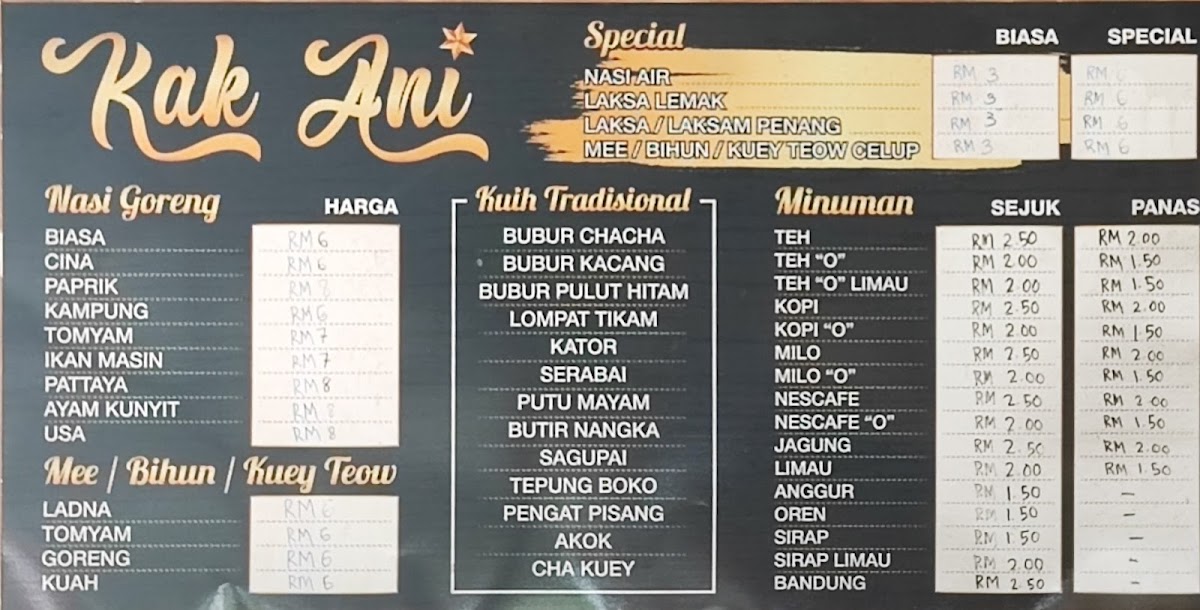 Kak Ani
Special BIASA SPECIAL
NASI AIR RM 3 RM 6
LAKSA LEMAK RM 3 RM 6
LAKSA / LAKSAM PENANG RM 3 RM 6
MEE / BIHUN / KUEY TEOW CELUP RM 3 RM 6
Nasi Goreng HARGA
BIASA RM 6
CINA RM 6
PAPRIK RM 8
KAMPUNG RM 6
TOMYAM RM 7
IKAN MASIN RM 7
PATTAYA RM 8
AYAM KUNYIT RM 8
USA RM 8
Mee / Bihun / Kuey Teow
LADNA RM 6
TOMYAM RM 6
GORENG RM 6
KUAH RM 6
Kuih Tradisional
BUBUR CHACHA
BUBUR KACANG
BUBUR PULUT HITAM
LOMPAT TIKAM
KATOR
SERABAI
PUTU MAYAM
BUTIR NANGKA
SAGUPAI
TEPUNG BOKO
PENGAT PISANG
AKOK
CHA KUEY
Minuman SEJUK PANAS
TEH RM 2.50 RM 2.00
TEH "O" RM 2.00 RM 1.50
TEH "O" LIMAU RM 2.00 RM 1.50
KOPI RM 2.50 RM 2.00
KOPI "O" RM 2.00 RM 1.50
MILO RM 2.50 RM 2.00
MILO "O" RM 2.00 RM 1.50
NESCAFE RM 2.50 RM 2.00
NESCAFE "O" RM 2.00 RM 1.50
JAGUNG RM 2.50 RM 2.00
LIMAU RM 2.00 RM 1.50
ANGGUR RM 1.50 -
OREN RM 1.50 -
SIRAP RM 1.50 -
SIRAP LIMAU RM 2.00 -
BANDUNG RM 2.50 -